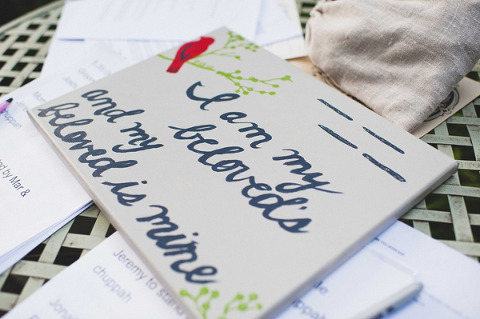 I am my
beloved's
and my
beloved is mine
by Mar &
Jeremy to
chuppah